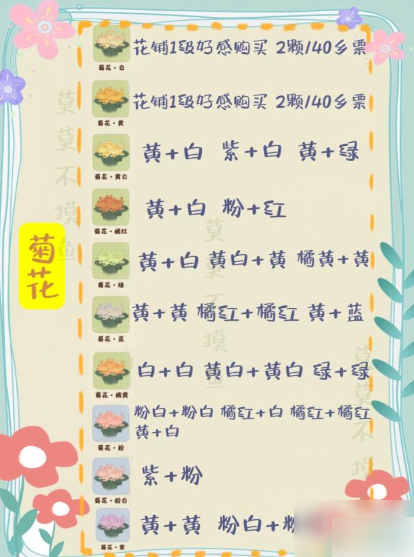 花铺1级好感购买 2颗/40乡票
菊花·白
花铺1级好感购买 2颗/140乡票
菊花·黄
黄+白 紫+白 黄+绿
菊花·黄白
黄+白 粉+红
菊花·橘红
菊花
黄+白 黄白+黄 橘黄+黄
菊花·绿
黄+黄 橘红+橘红 黄+蓝
菊花·蓝
白+白 黄白+黄白 绿+绿
菊花·橘黄
粉白+粉白 橘红+白 橘红+橘红
黄+白
菊花·粉
紫+粉
菊花·粉白
黄+黄 粉白+
菊花·紫
莫莫不摸鱼
莫莫不摸